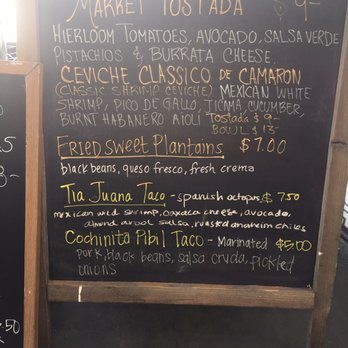 MARKET TOSTADA $9-
HIERLOOM TOMATOES, AVOCADO, SALSA VERDE
PISTACHIOS & BURRATA CHEESE
CEVICHE CLASSICO DE CAMARON
(CLASSIC SHRIMP CEVICHE) MEXICAN WHITE
SHRIMP, PICO DE GALLO, JICAMA, CUCUMBER,
BURNT HABANERO AIOLI Tostada $9-
BOWL $13-
FRIED SWEET Plantains $7.00
black beans, queso fresco, fresh crema
Tia Juana Taco - spanish octopus $7.50
mexican wild shrimp, oaxaca cheese, avocado,
almond arbol salsa, roasted anaheim chiles
Cochinita Pibil Taco - Marinated $5.00
pork, black beans, salsa cruda, pickled
onions
.50